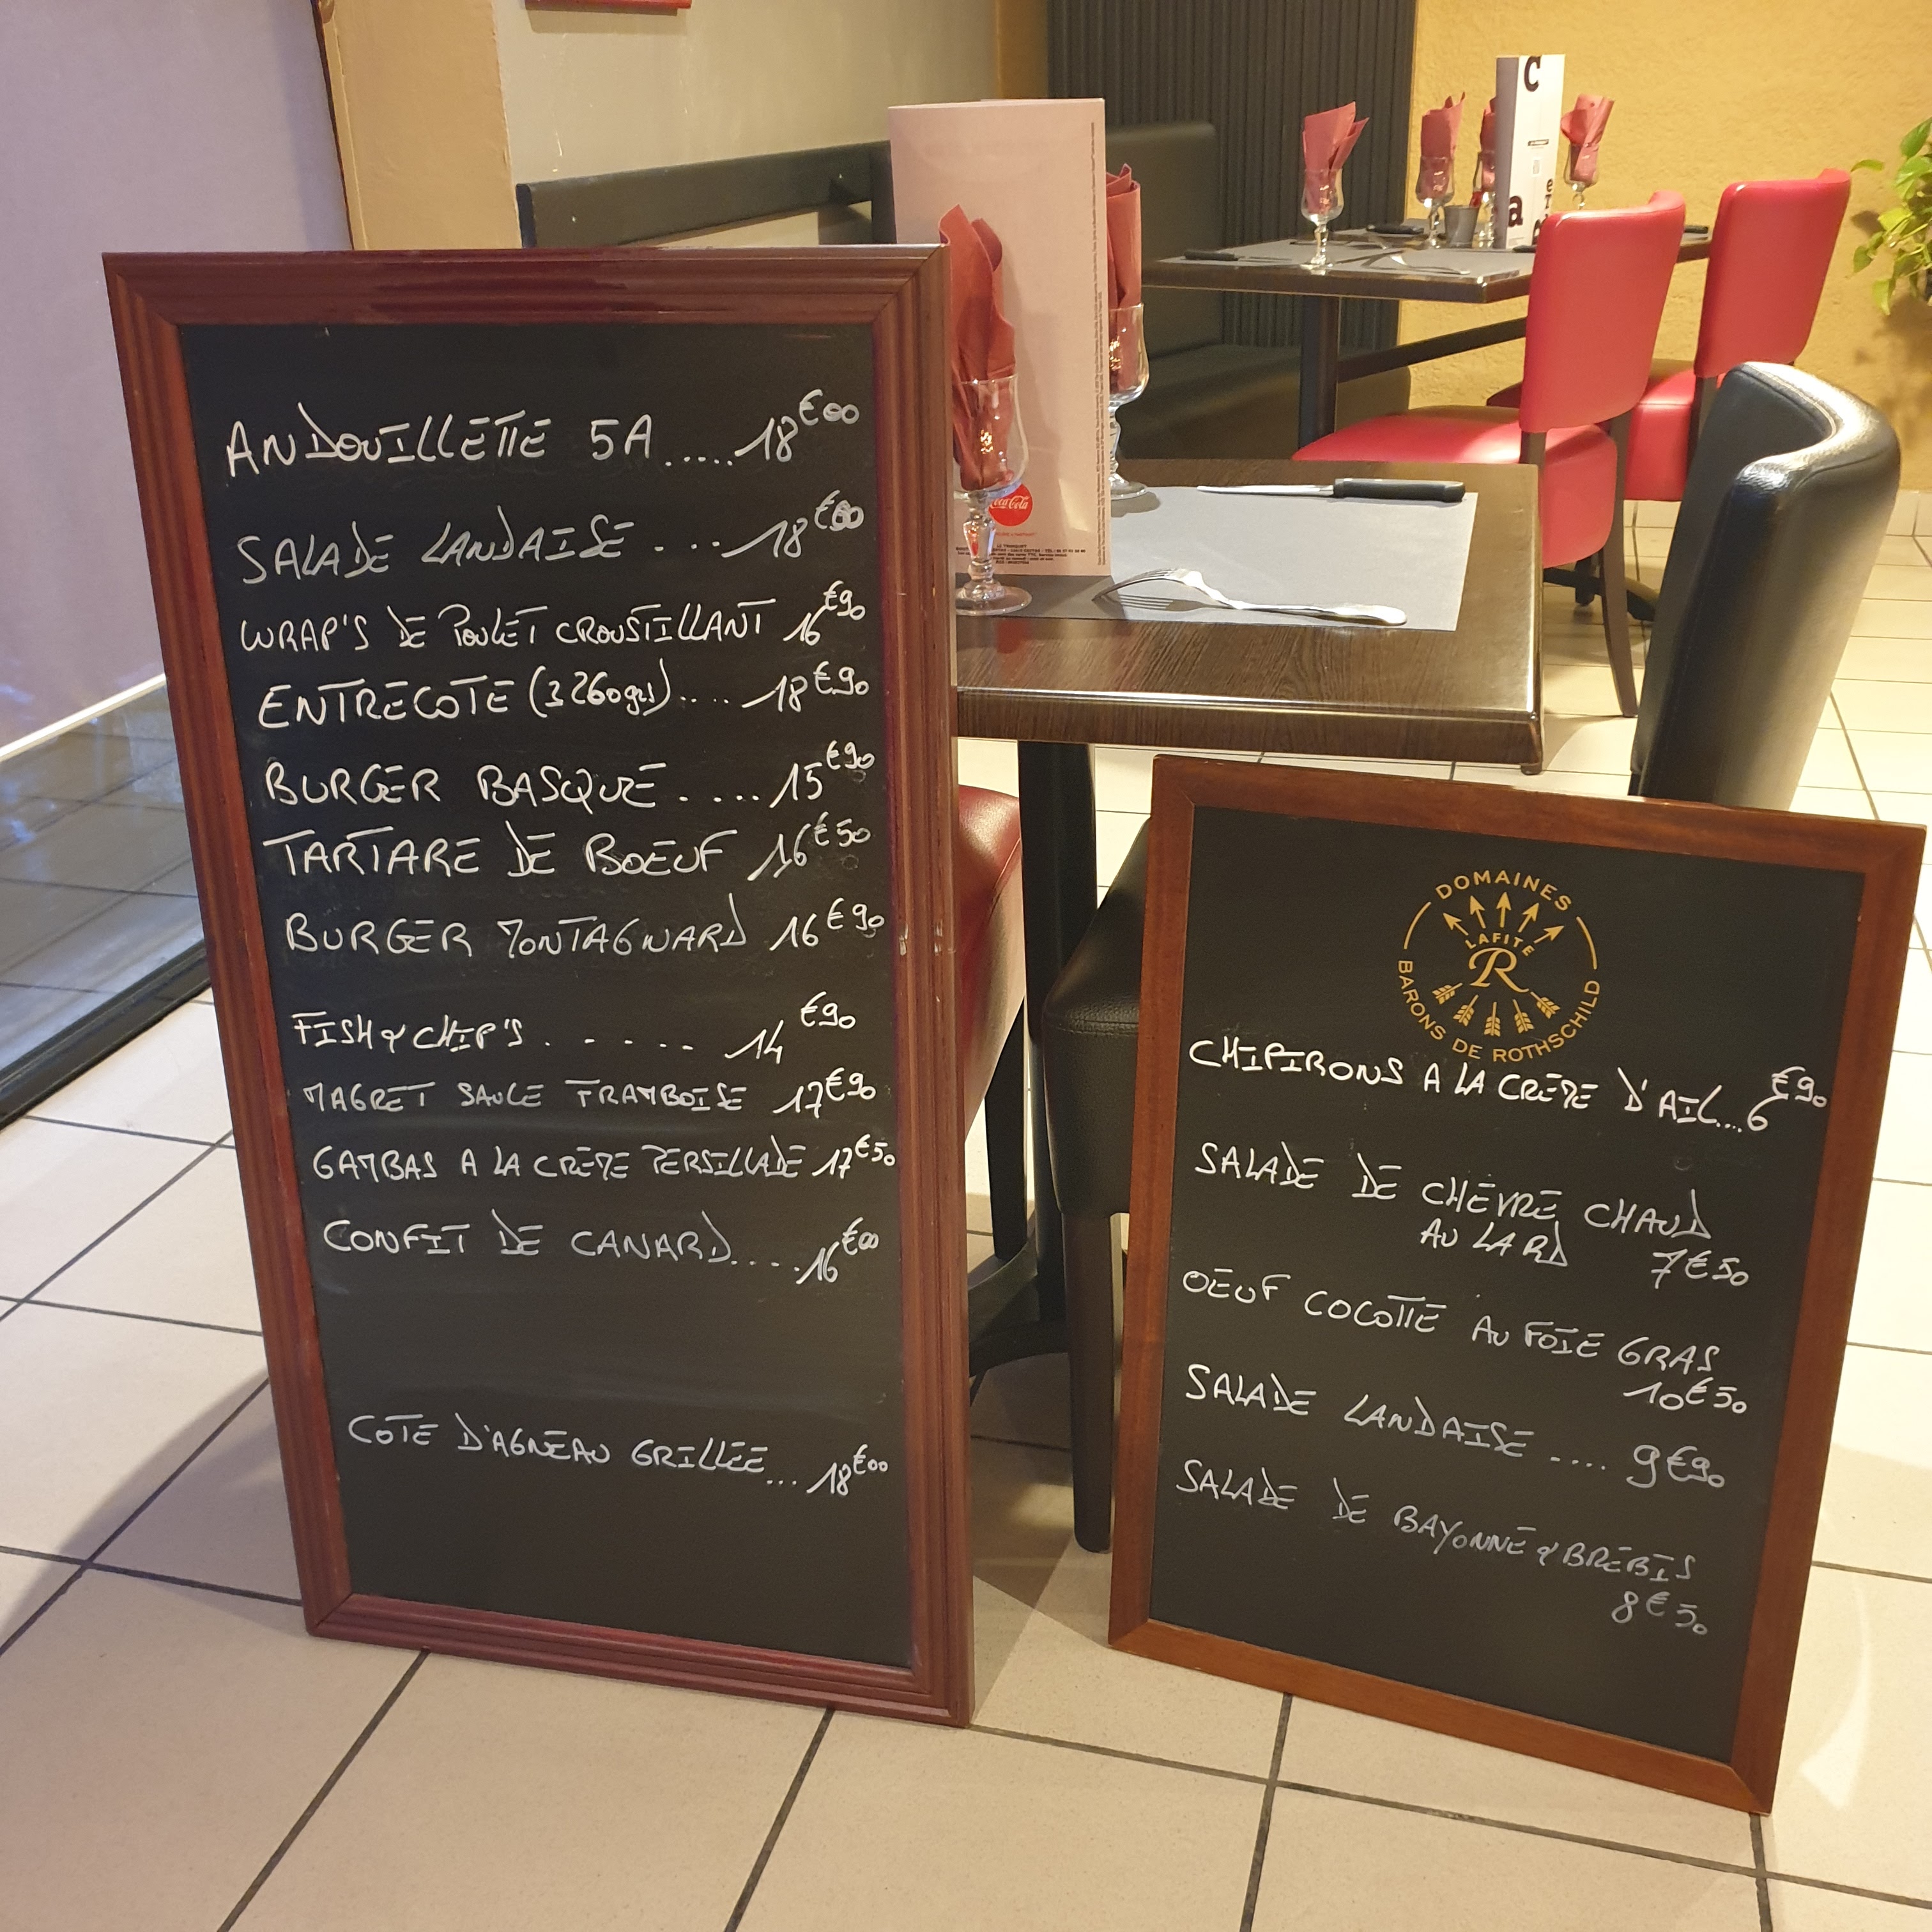 ANDOUILLETTE 5A.....18€00
SALADE LANDAISE ....18€00
WRAP'S DE POULET CROUSTILLANT 16€90
ENTRECOTE (± 260grs)....18€90
BURGER BASQUE ....15€90
TARTARE DE BOEUF 16€50
BURGER MONTAGNARD 16€90
FISH & CHIP'S ...... 14€90
MAGRET SAUCE FRAMBOISE 17€90
GAMBAS A LA CREME PERSILLADE 17€50
CONFIT DE CANARD....16€00
COTE D'AGNEAU GRILLEE...18€00
DOMAINES
LAFITE
R
BARONS DE ROTHSCHILD
CHIPIRONS A LA CREME D'AIL...6€90
SALADE DE CHEVRE CHAUD
AU LARD 7€50
OEUF COCOTTE AU FOIE GRAS
10€50
SALADE LANDAISE .... 9€90
SALADE DE BAYONNE & BREBIS
8€50
Coca-Cola
C
a